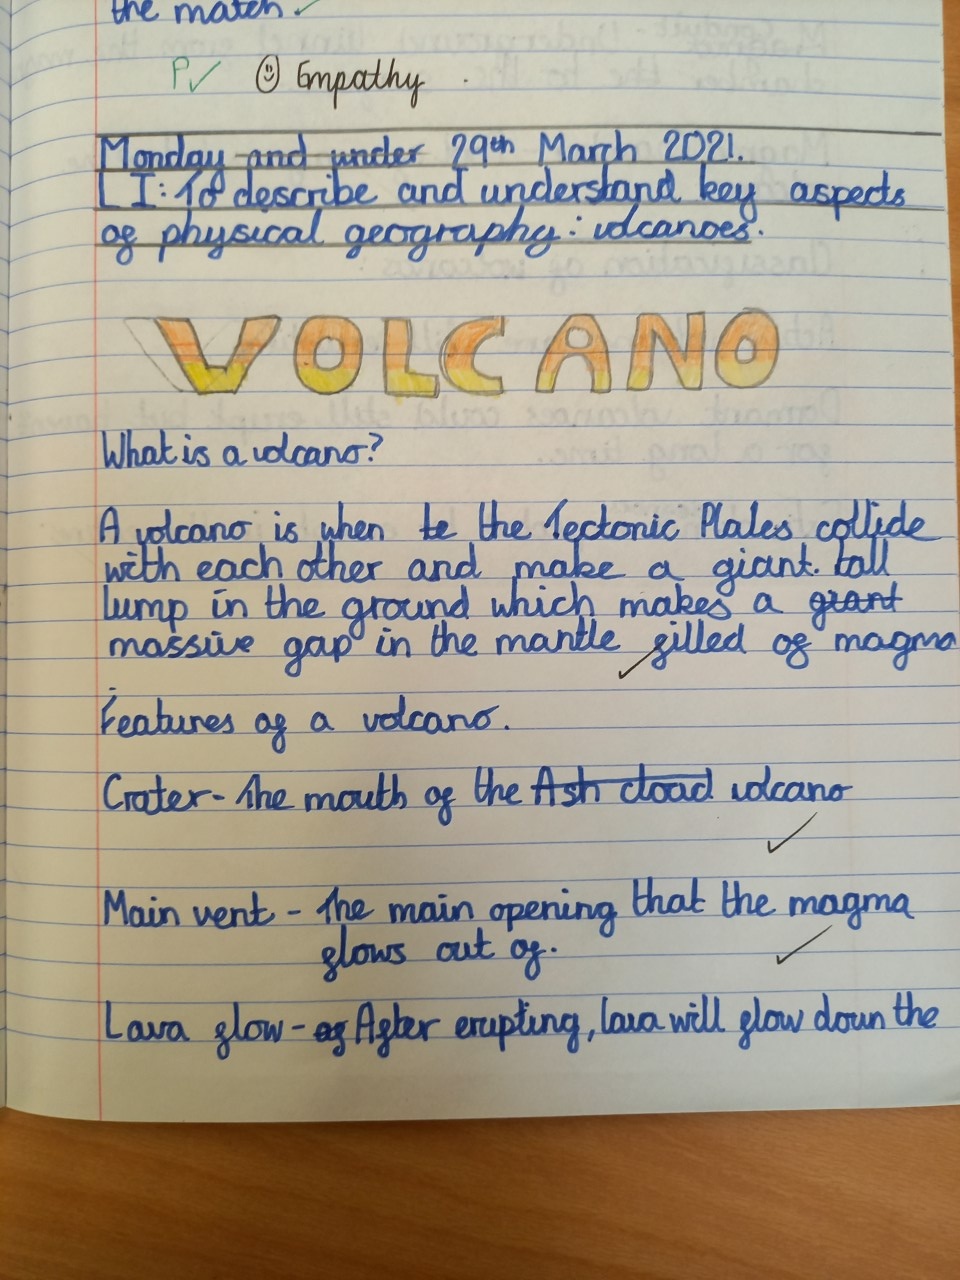 the match.
P Empathy
Monday and under 29th March 2021.
L I: To describe and understand key aspects
of physical geography: volcanoes.
VOLCANO
What is a volcano?
A volcano is when te the Tectonic Plates collide
with each other and make a giant tall
lump in the ground which makes a giant
massive gap in the mantle filled of magma
Features of a volcano.
Crater - The mouth of the Ash cload volcano
Main vent - The main opening that the magma
flows out of.
Lava flow - of After erupting, lava will flow down the